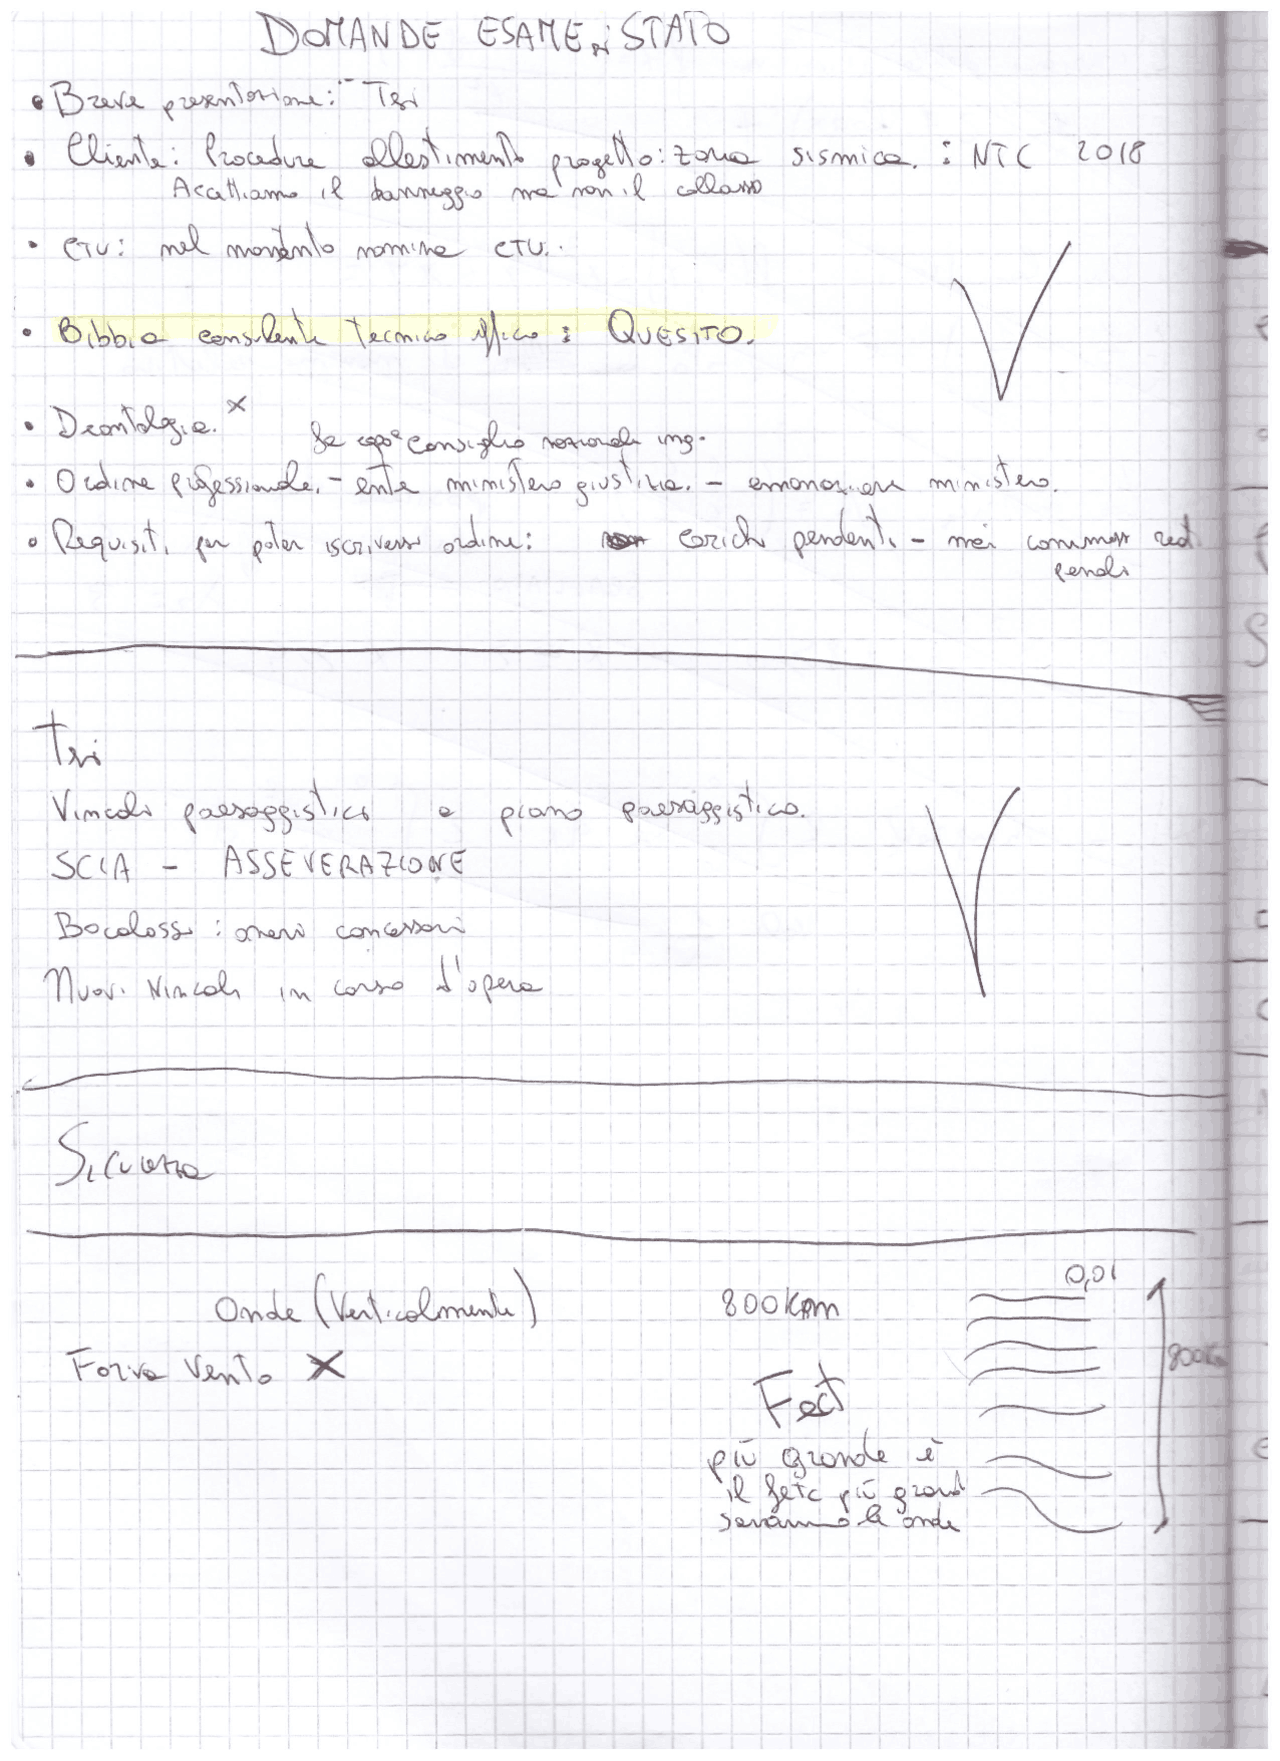 DOMANDE ESAME DI STATO
• Breve presentazione: - Tesi
• Cliente: Procedure allestimento progetto: zona sismica. : NTC 2018
Accettiamo il danneggio ma non il collasso
• CTU: nel momento nomina CTU.
• Bibbia consulente tecnico ufficio : QUESITO.
• Deontologia. x
fa capo consiglio nazionale ing.
• Ordine professionale. - ente ministero giustizia. - emanazione ministero.
• Requisiti per poter iscriversi ordine: carichi pendenti - mai commessi reati
penali
Tesi
Vincoli paesaggistici e piano paesaggistico.
SCIA - ASSEVERAZIONE
Bocalossi : oneri concessori
Nuovi vincoli in corso d'opera
Sicurezza
0,01
Onde (Verticalmente) 800Km
Forza Vento X
800Km
Fect
più grande è
il fetc più grandi
saranno le onde